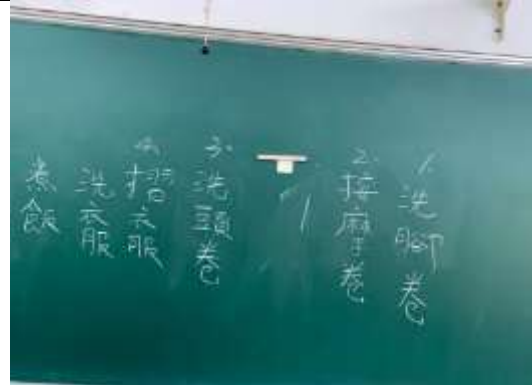 1. 洗腳卷
2. 按麻子卷
3. 洗頭卷
4. 摺衣服
洗衣服
煮飯